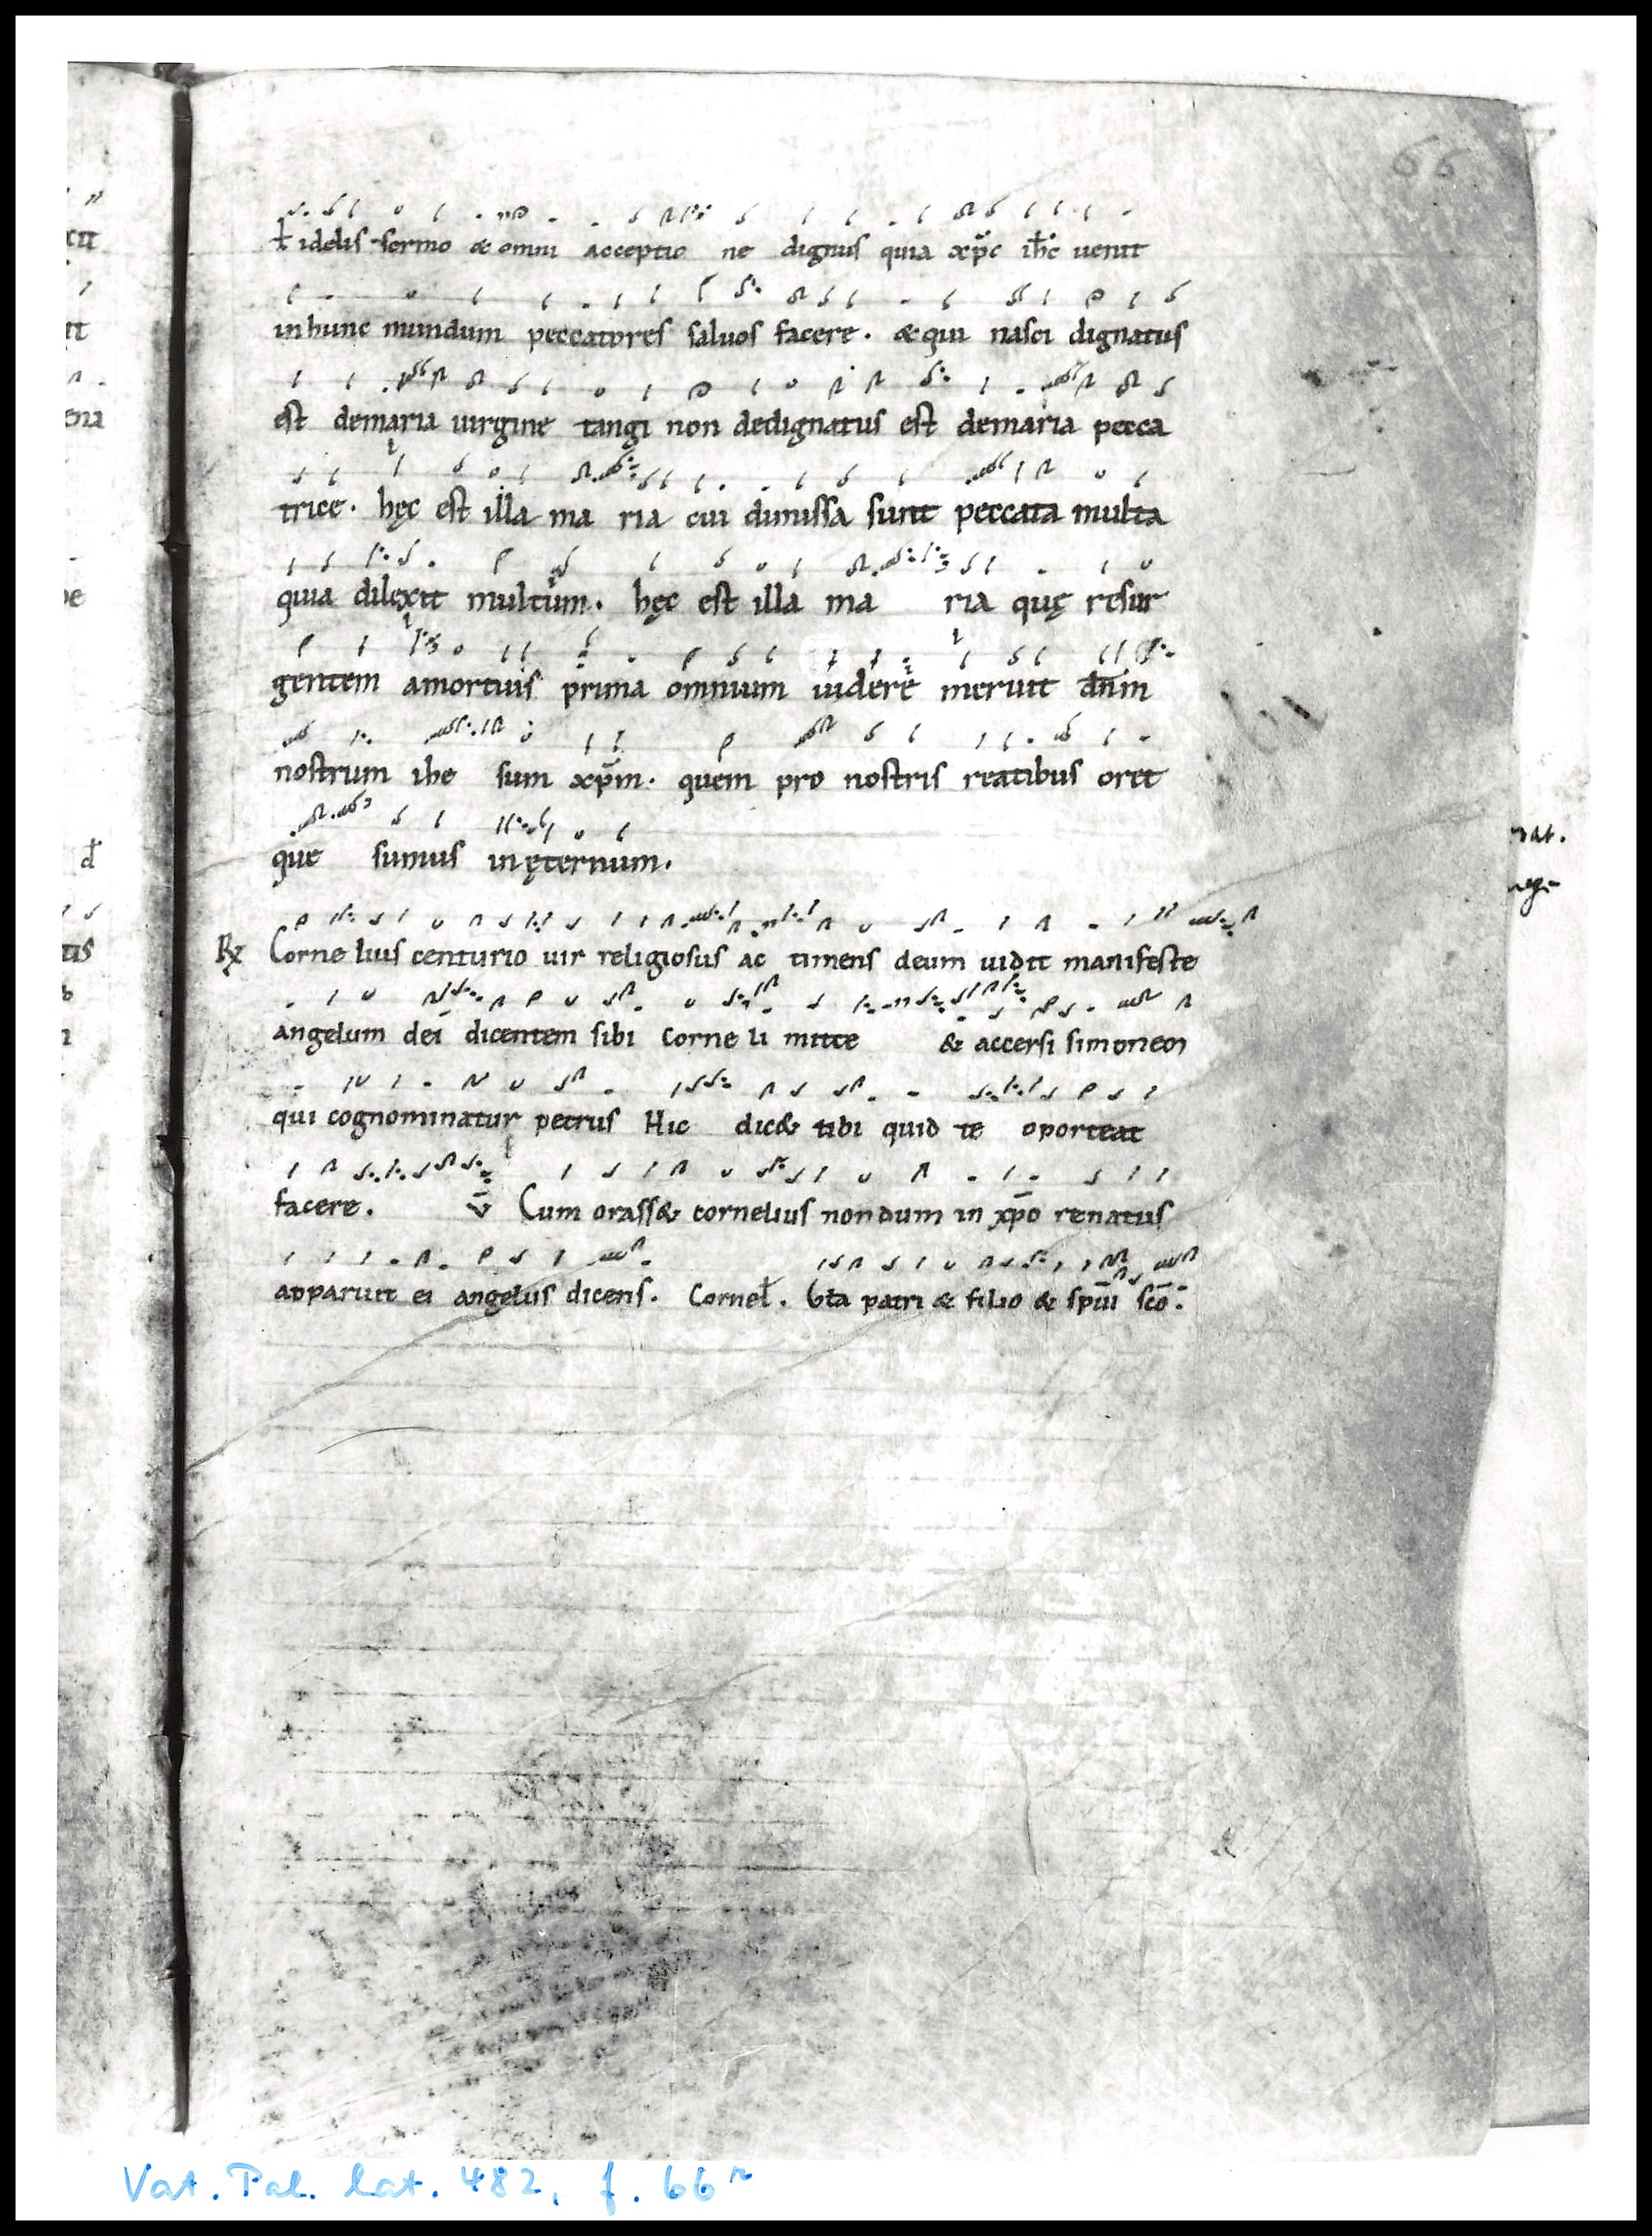 66
Fidelis sermo & omni acceptio ne dignus quia xp̄c ih̄c uenit
in hunc mundum peccatores saluos facere. & qui nasci dignatus
est de maria uirgine tangi non dedignatus est de maria pecca
trice. hęc est illa ma ria cui dimissa sunt peccata multa
quia dilexit multum. hęc est illa ma ria quę resur
gentem amortuis prima omnium uidere meruit dn̄m
nostrum ihe sum xp̄m. quem pro nostris reatibus oret
que sumus in ęternum.
R̷ Corne lius centurio uir religiosus ac timens deum uidit manifeste
angelum dei dicentem sibi corne li mitte & accersi simonem
qui cognominatur petrus Hic dic& tibi quid te oporteat
facere. v̄ Cum orass& cornelius nondum in xp̄o renatus
apparuit ei angelus dicens. Cornel̄. Gła patri & filio & sp̄ui sc̄o.
xit
it
ena
pe
tis
nat.
Vat. Pal. lat. 482, f. 66r